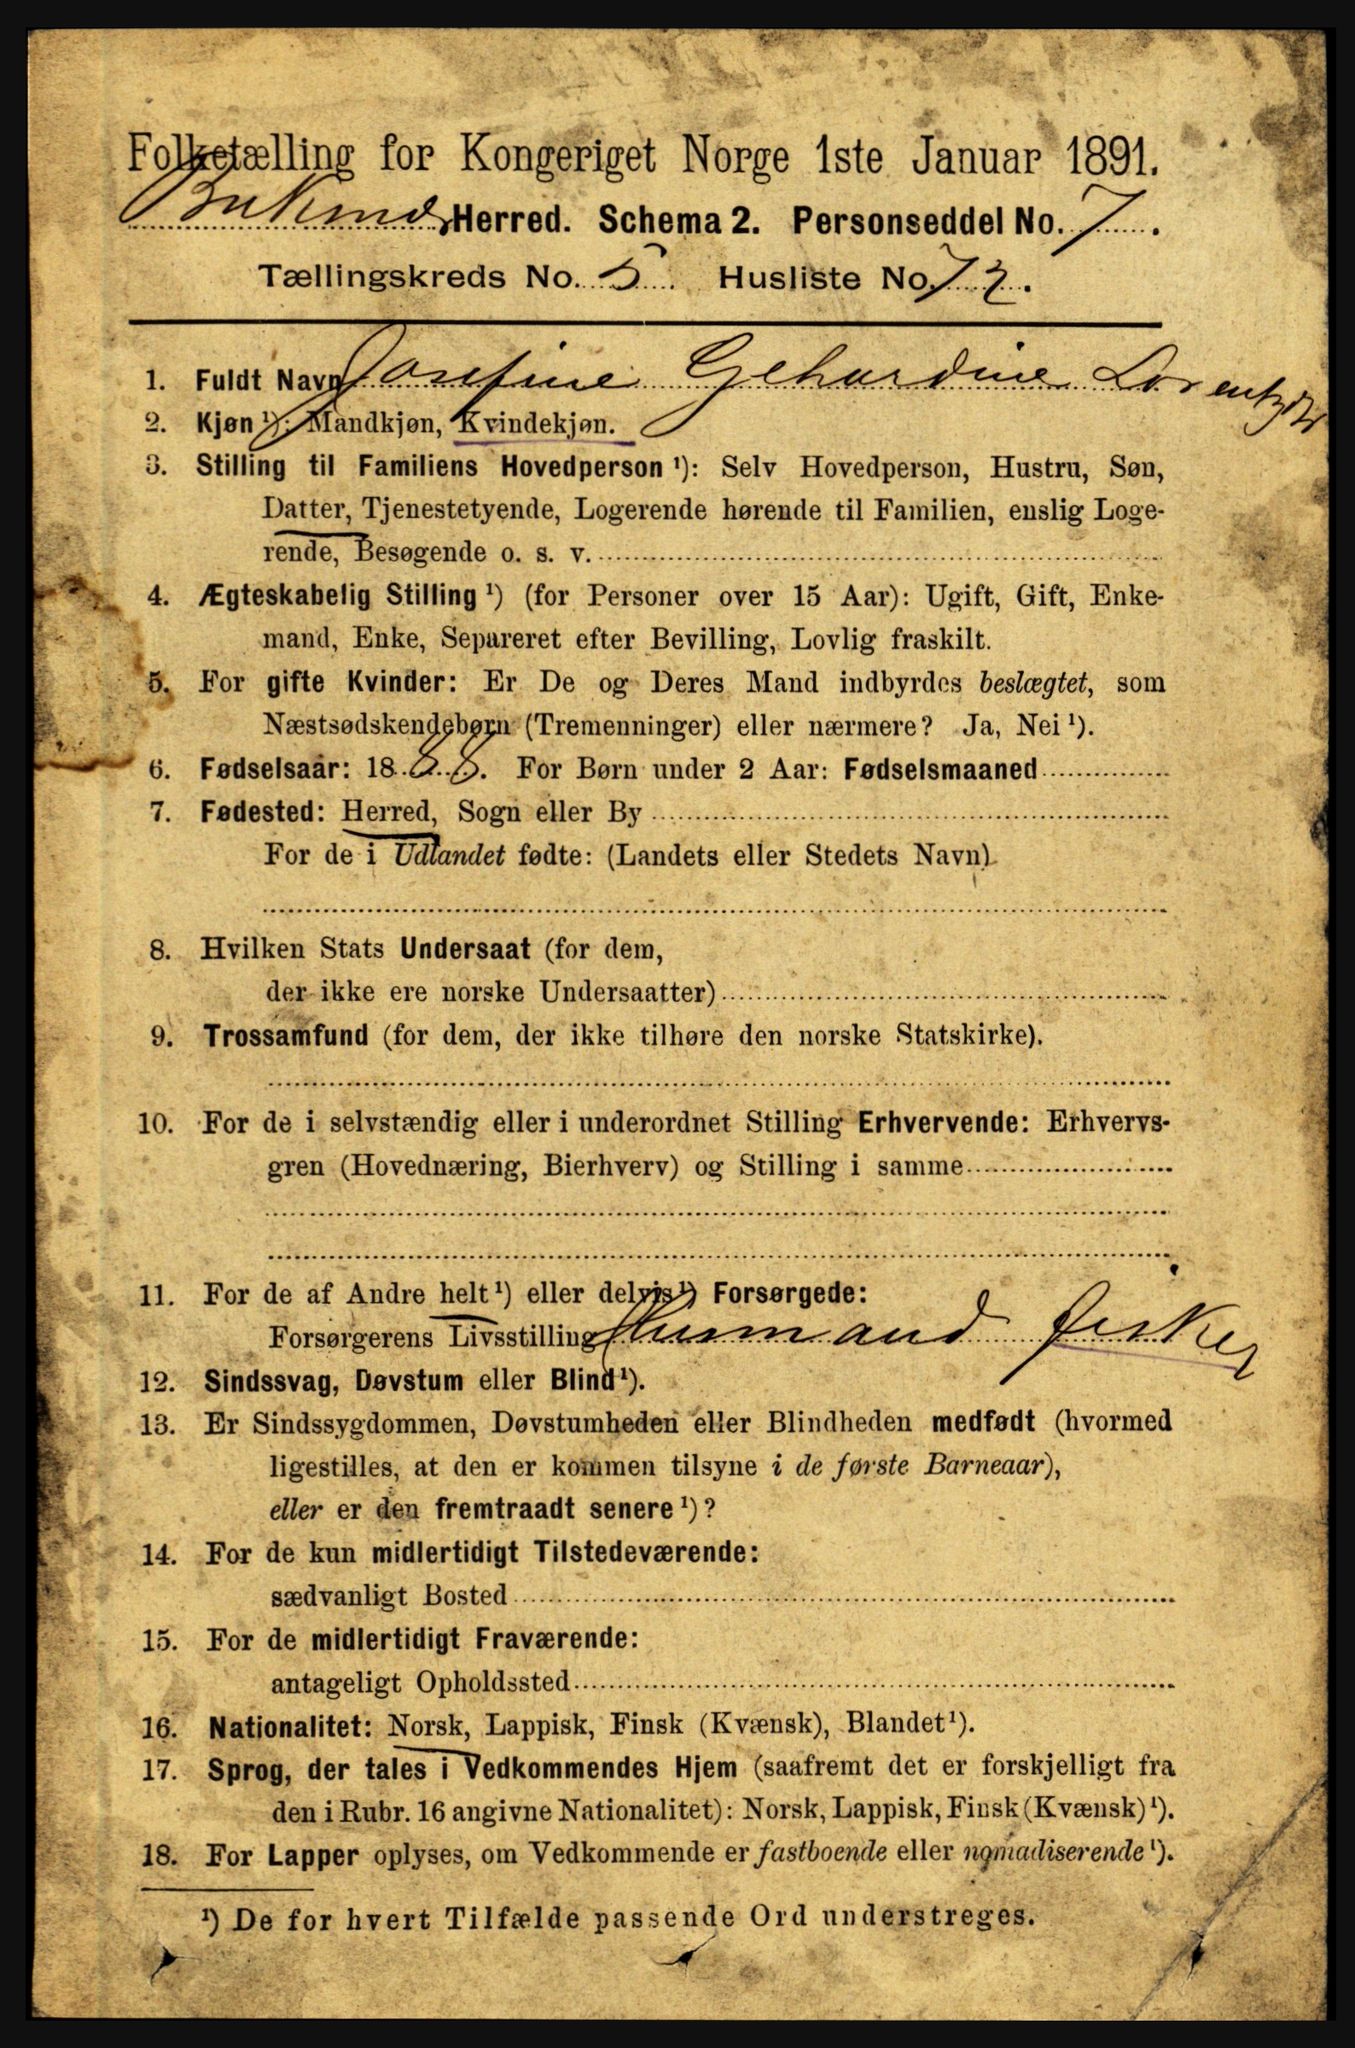 Folketælling for Kongeriget Norge 1ste Januar 1891.
Buksnæs Herred. Schema 2. Personseddel No. 7.
Tællingskreds No. 5 Husliste No. 72.
1. Fuldt Navn Josefine Gehardine Lorentzdtr
2. Kjøn ¹): Mandkjøn, Kvindekjøn.
3. Stilling til Familiens Hovedperson ¹): Selv Hovedperson, Hustru, Søn,
Datter, Tjenestetyende, Logerende hørende til Familien, enslig Loge-
rende, Besøgende o. s. v.
4. Ægteskabelig Stilling ¹) (for Personer over 15 Aar): Ugift, Gift, Enke-
mand, Enke, Separeret efter Bevilling, Lovlig fraskilt.
5. For gifte Kvinder: Er De og Deres Mand indbyrdes beslægtet, som
Næstsødskendebørn (Tremenninger) eller nærmere? Ja, Nei ¹).
6. Fødselsaar: 1888. For Børn under 2 Aar: Fødselsmaaned
7. Fødested: Herred, Sogn eller By
For de i Udlandet fødte: (Landets eller Stedets Navn)
8. Hvilken Stats Undersaat (for dem,
der ikke ere norske Undersaatter)
9. Trossamfund (for dem, der ikke tilhøre den norske Statskirke).
10. For de i selvstændig eller i underordnet Stilling Erhvervende: Erhvervs-
gren (Hovednæring, Bierhverv) og Stilling i samme
11. For de af Andre helt ¹) eller delvis ¹) Forsørgede:
Forsørgerens Livsstilling Husmand fisker
12. Sindssvag, Døvstum eller Blind ¹).
13. Er Sindssygdommen, Døvstumheden eller Blindheden medfødt (hvormed
ligestilles, at den er kommen tilsyne i de første Barneaar),
eller er den fremtraadt senere ¹)?
14. For de kun midlertidigt Tilstedeværende:
sædvanligt Bosted
15. For de midlertidigt Fraværende:
antageligt Opholdssted
16. Nationalitet: Norsk, Lappisk, Finsk (Kvænsk), Blandet ¹).
17. Sprog, der tales i Vedkommendes Hjem (saafremt det er forskjelligt fra
den i Rubr. 16 angivne Nationalitet): Norsk, Lappisk, Finsk (Kvænsk) ¹).
18. For Lapper oplyses, om Vedkommende er fastboende eller nomadiserende ¹).
¹) De for hvert Tilfælde passende Ord understreges.